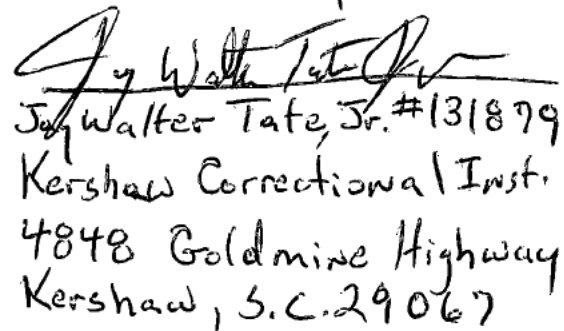 Jay Walter Tate Jr
Jay Walter Tate, Jr. #131879
Kershaw Correctional Inst.
4848 Goldmine Highway
Kershaw, S.C. 29067